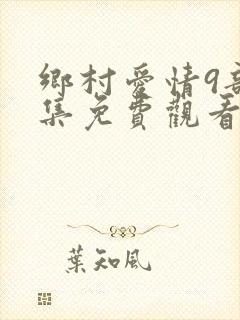 鄉村愛情9部全
集免費觀看
葉知風